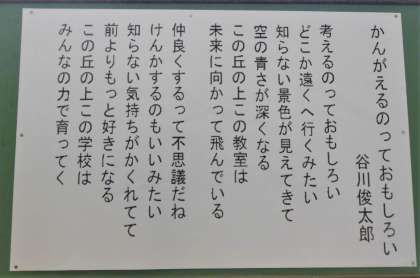 かんがえるのっておもしろい
谷川俊太郎
考えるのっておもしろい
どこか遠くへ行くみたい
知らない景色が見えてきて
空の青さが深くなる
この丘の上この教室は
未来に向かって飛んでいる
仲良くするって不思議だね
けんかするのもいいみたい
知らない気持ちがかくれてて
前よりもっと好きになる
この丘の上この学校は
みんなの力で育ってく